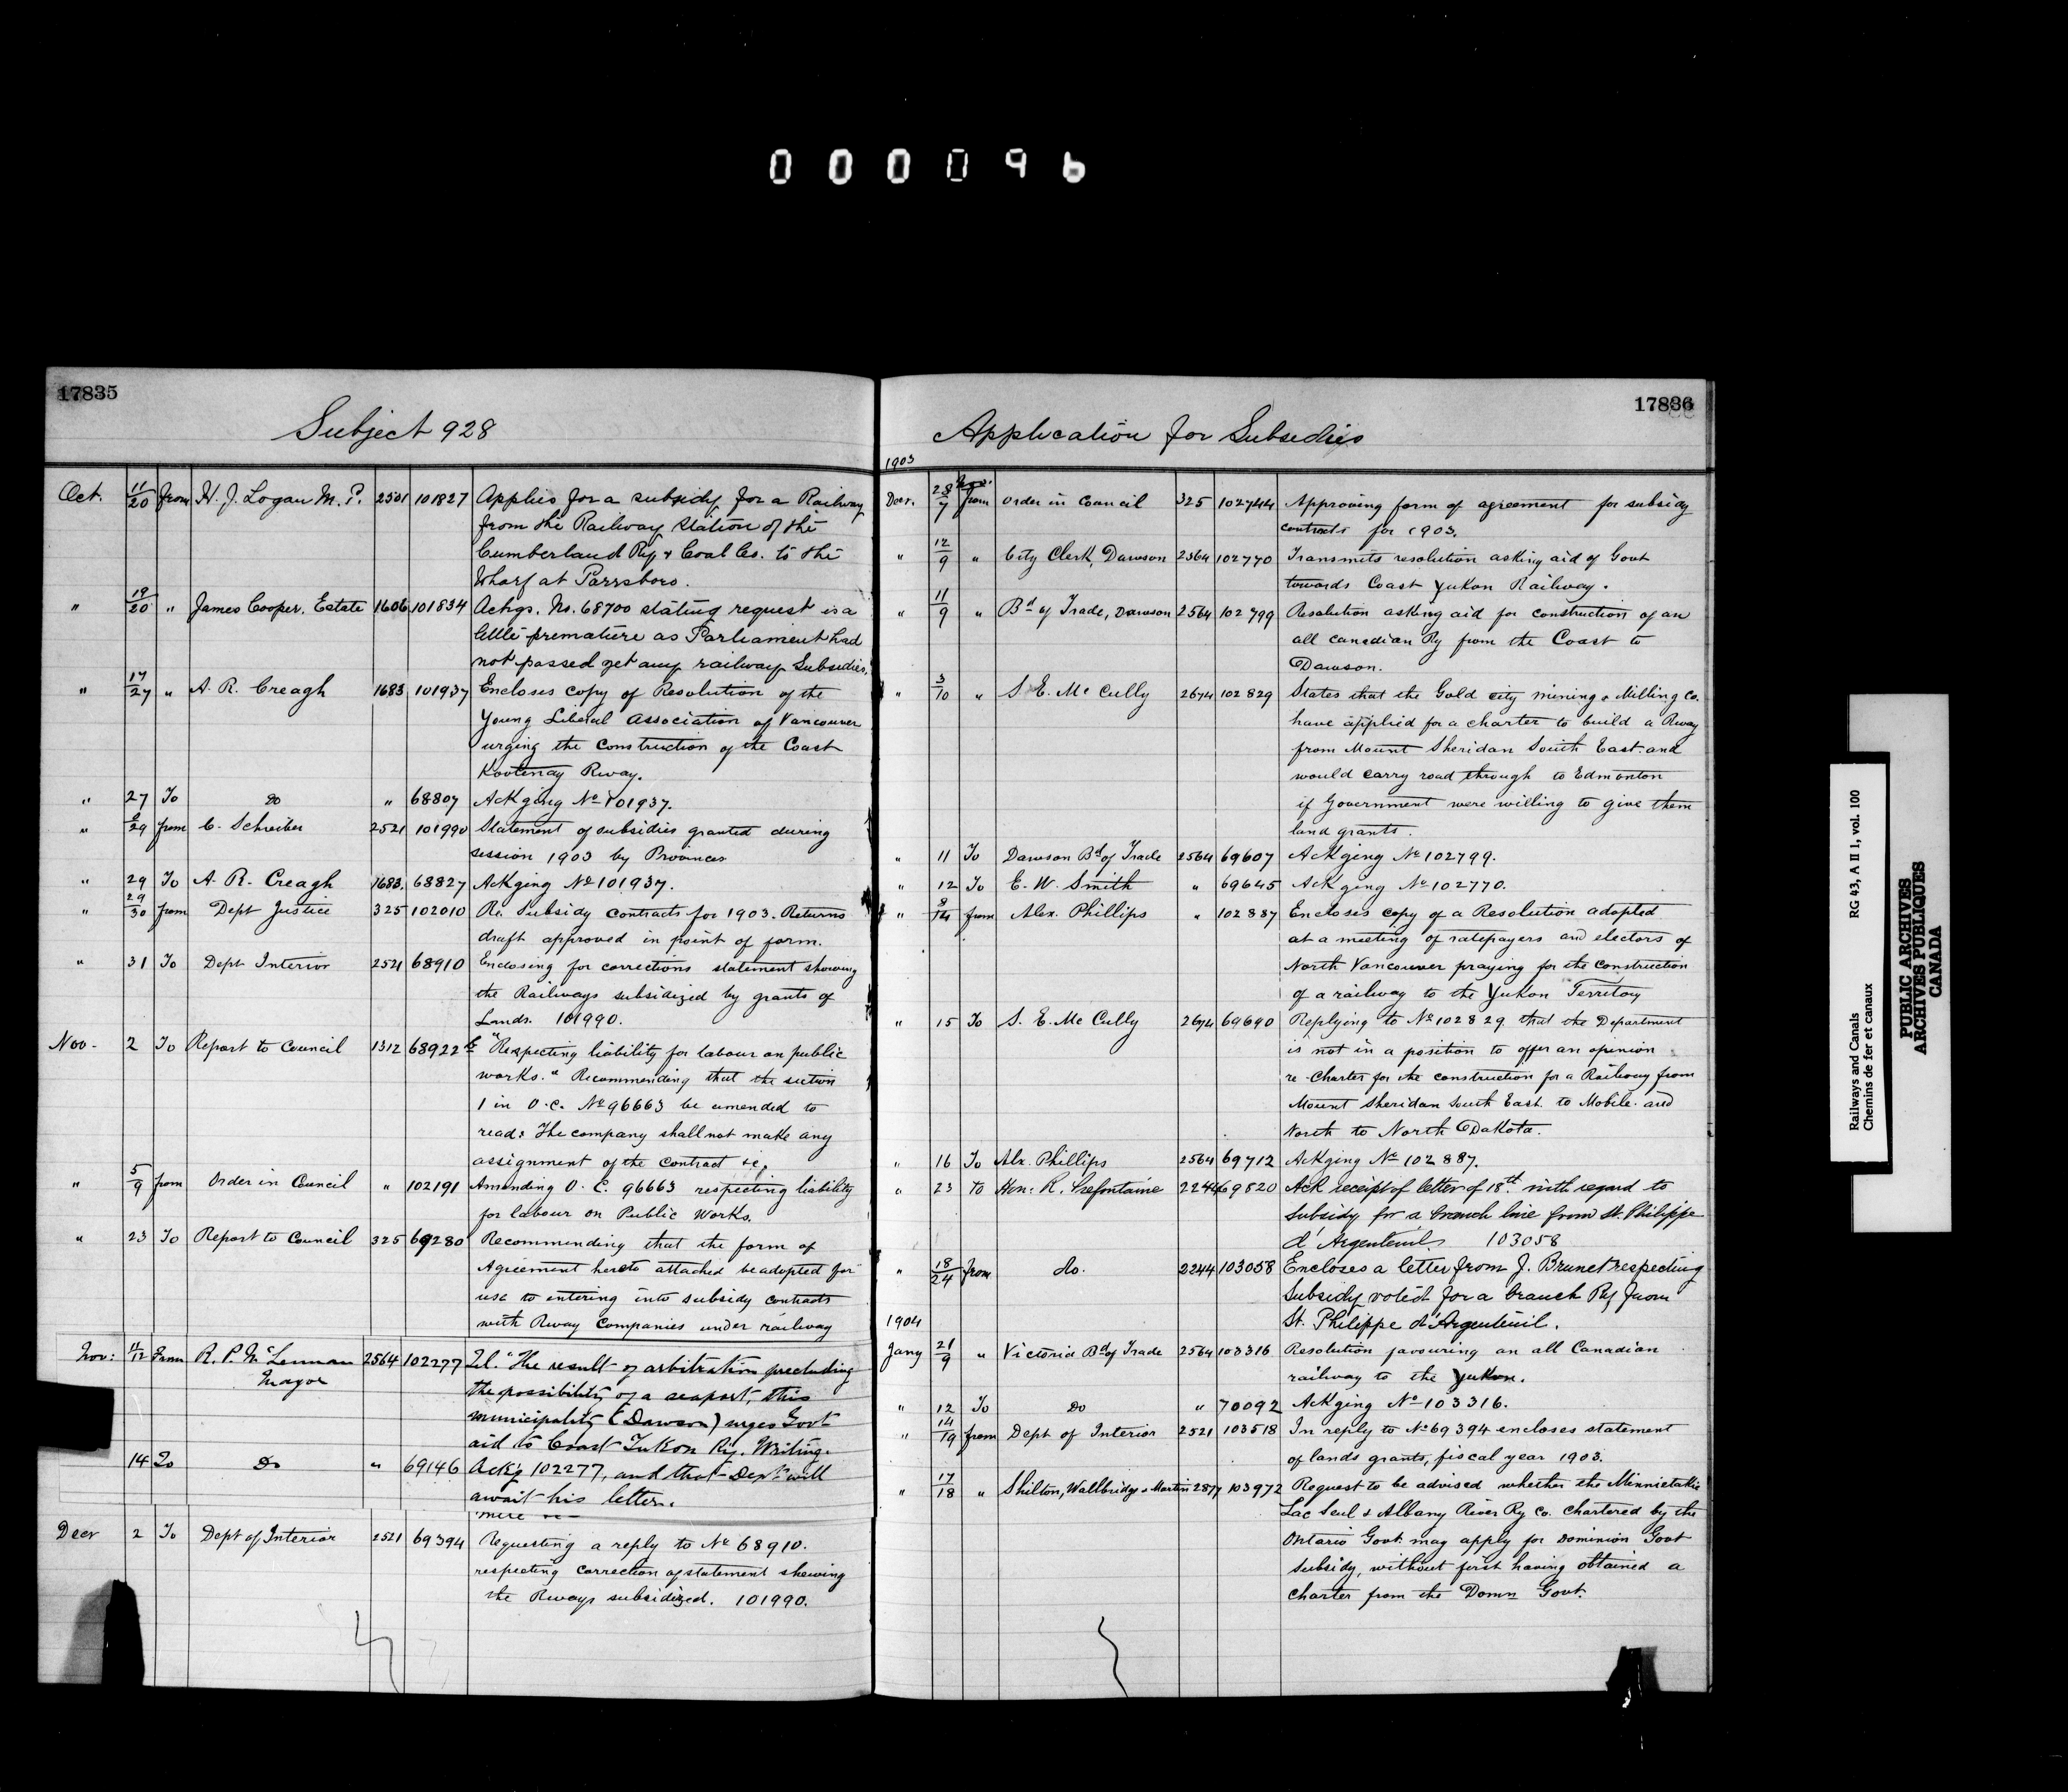 000096
17835
Subject 928
Oct. 11/20 from H. J. Logan M. P. 2501 101827 Applies for a subsidy for a Railway
from the Railway Station of the
Cumberland Ry & Coal Co. to the
Wharf at Parrsboro.
" 19/20 " James Cooper. Estate 1606 101834 Ackgs. No. 68700 stating request is a
little premature as Parliament had
not passed yet any railway Subsidies.
" 17/27 " A. R. Creagh 1683 101937 Encloses copy of Resolution of the
Young Liberal Association of Vancouver
urging the Construction of the Coast
Kootenay Rway.
" 27 To do " 68807 Ackging No 101937.
" 29 from C. Schreiber 2521 101990 Statement of subsidies granted during
session 1903 by Provinces
" 29 To A. R. Creagh 1683. 68827 Ackging No 101937.
" 29/30 from Dept Justice 325 102010 Re. Subsidy contracts for 1903. Returns
draft approved in point of form.
" 31 To Dept Interior 2521 68910 Enclosing for corrections statement showing
the Railways subsidized by grants of
Lands. 101990.
Nov - 2 To Report to Council 1312 68922½ "Respecting liability for labour on public
works." Recommending that the section
1 in O.C. No 96663 be amended to
read: The company shall not make any
assignment of the contract &c.
" 5/9 from Order in Council " 102191 Amending O. C. 96663 respecting liability
for labour on Public Works.
" 23 To Report to Council 325 69280 Recommending that the form of
Agreement hereto attached be adopted for
use to entering into subsidy contracts
with Rway Companies under railway
Nov: 11/12 From R. P. McLennan 2564 102277 Tel. "The result of arbitration precluding
Mayor the possibility of a seaport, this
municipality (Dawson) urges Govt
aid to Coast Yukon Ry. Writing.
14 To Do " 69146 Ackg 102277, and that Dept will
await his letter.
Decr 2 To Dept of Interior 2521 69394 Requesting a reply to No 68910.
respecting correction of statement shewing
the Rways subsidized. 101990.
17836
Application for Subsidies
1903
Decr. 28/7 Nov. from Order in Council 325 102744 Approving form of agreement for subsidy
contracts for 1903.
" 12/9 " City Clerk, Dawson 2564 102770 Transmits resolution asking aid of Govt
towards Coast Yukon Railway.
" 11/9 " Bd of Trade, Dawson 2564 102799 Resolution asking aid for construction of an
all Canadian Ry from the Coast to
Dawson.
" 3/10 " S. E. McCully 2674 102829 States that the Gold City Mining & Milling Co.
have applied for a charter to build a Rway
from Mount Sheridan South East. and
would carry road through to Edmonton
if Government were willing to give them
land grants.
" 11 To Dawson Bd of Trade 2564 69607 Ackging No 102799.
" 12 To E. W. Smith " 69645 Ackging No 102770.
" 8/14 from Alex. Phillips " 102887 Encloses copy of a Resolution adopted
at a meeting of ratepayers and electors of
North Vancouver praying for the construction
of a railway to the Yukon Territory
" 15 To S. E. McCully 2674 69690 Replying to No 102829 that the Department
is not in a position to offer an opinion
re Charter for the construction for a Railway from
Mount Sheridan South East. to Mobile. and
North to North Dakota.
" 16 To Alx. Phillips 2564 69712 Ackging No 102887.
" 23 to Hon: R. Prefontaine 2244 69820 Ack receipt of letter of 18th. with regard to
subsidy for a branch line from St. Philippe
d'Argenteuil. 103058
" 18/24 from do. 2244 103058 Encloses a letter from J. Brunet respecting
Subsidy voted for a branch Ry from
St. Philippe d'Argenteuil.
1904
Jany 21/9 " Victoria Bd of Trade 2564 103316 Resolution favouring an all Canadian
railway to the Yukon.
" 12 To Do " 70092 Ackging No 103316.
" 14/19 from Dept of Interior 2521 103518 In reply to No 69394 encloses statement
of lands grants, fiscal year 1903.
" 17/18 " Shilton, Wallbridge & Martin 2877 103972 Request to be advised whether the Minnietakie
Lac Seul & Albany River Ry Co. Chartered by the
Ontario Govt. may apply for Dominion Govt
subsidy, without first having obtained a
charter from the Domn Govt.
Railways and Canals RG 43, A II 1, vol. 100
Chemins de fer et canaux
PUBLIC ARCHIVES
ARCHIVES PUBLIQUES
CANADA